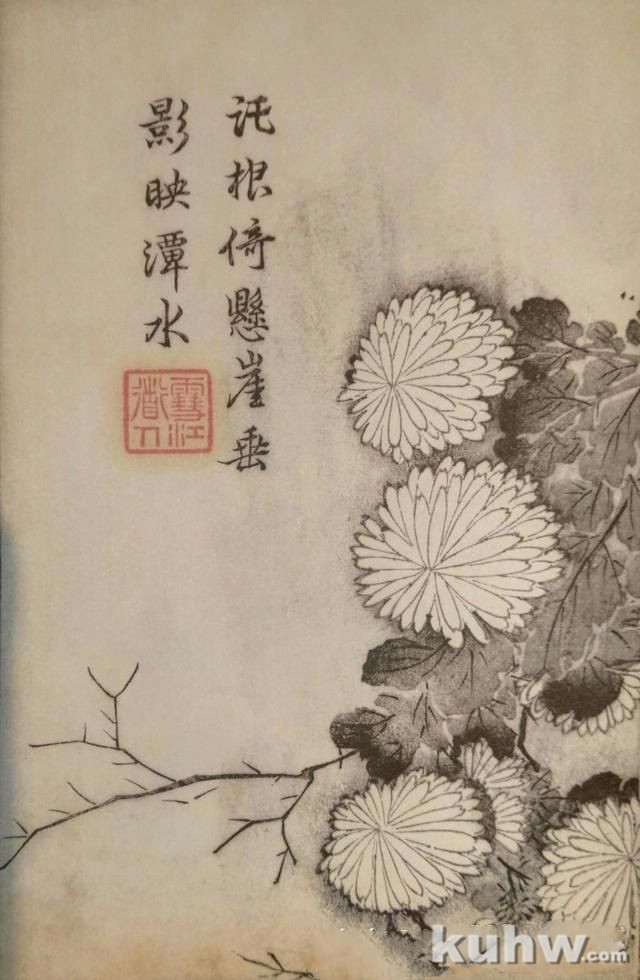 托根倚懸崖垂
影映潭水
雪江
kuhw.com